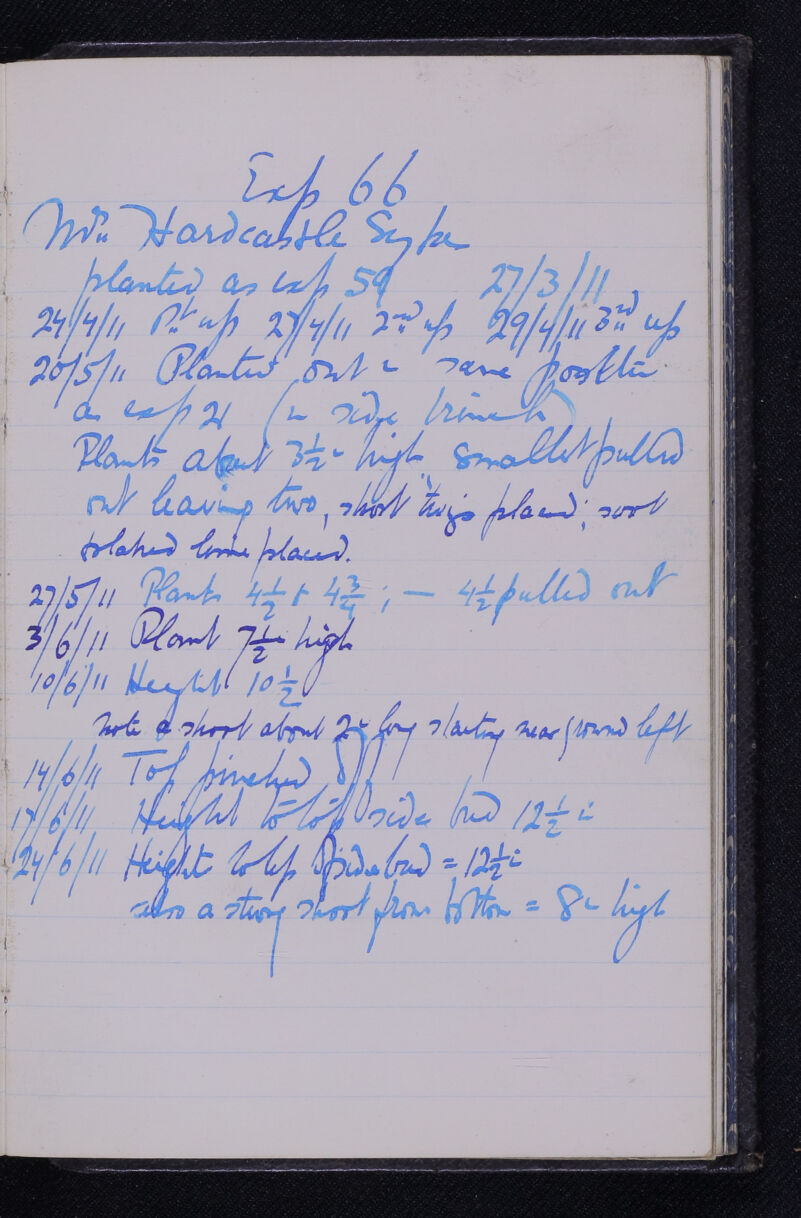 Exp 66
Mrs Hardcastle Sykes
planted as exp 59 27/3/11
24/4/11 1st up 27/4/11 2nd up 29/4/11 3rd up
20/5/11 Planted out in same position
as exp 21 (in side trench)
Plants about 3½in high smallest pulled
out leaving two, short twigs placed; soot
slaked lime placed.
27/5/11 Plants 4½ & 4¾; — 4½ pulled out
3/6/11 Plant 7½in high
10/6/11 Height 10½
note a shoot about 2in long starting near ground left
14/6/11 Top pinched off
17/6/11 Height to top side bud 12½ in
24/6/11 Height to top side bud = 12½in
also a strong shoot from bottom = 8in high